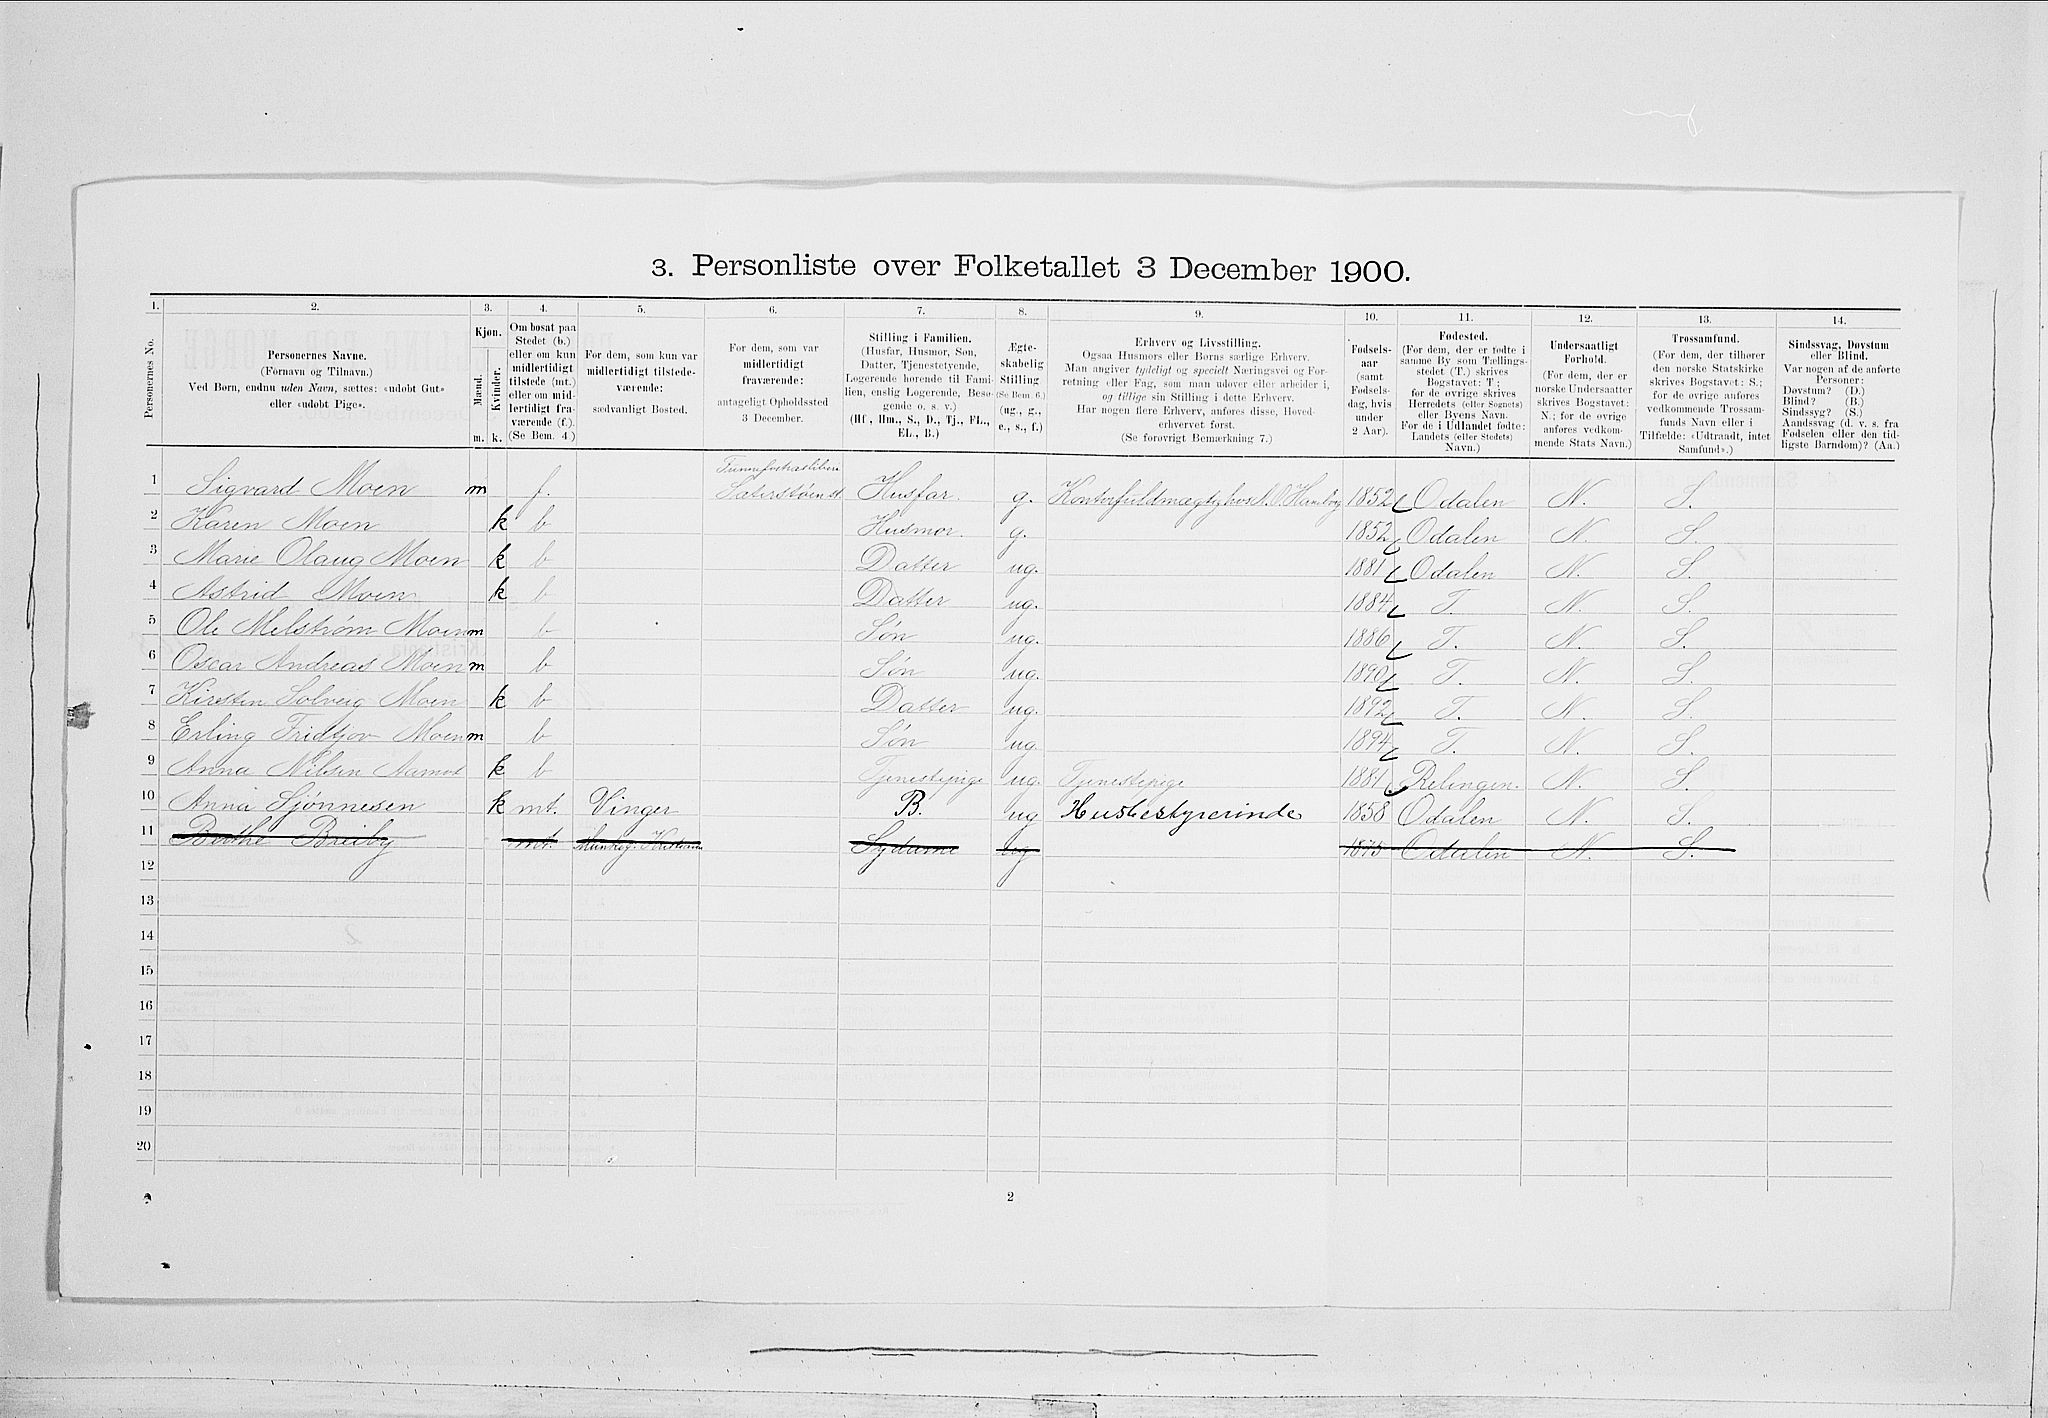 3. Personliste over Folketallet 3 December 1900.
1. 2. 3. 4. 5. 6. 7. 8. 9. 10. 11. 12. 13. 14.
Personernes No.
Personernes Navne.
(Fornavn og Tilnavn.)
Ved Børn, endnu uden Navn, sættes: «udøbt Gut»
eller «udøbt Pige».
Kjøn.
Mænd.
Kvinder.
m. k.
Om bosat paa
Stedet (b.)
eller om kun
midlertidigt
tilstede (mt.)
eller om mid-
lertidigt fra-
værende (f.)
(Se Bem. 4.)
For dem, som kun var
midlertidigt tilstede-
værende:
sædvanligt Bosted.
For dem, som var
midlertidigt
fraværende:
antageligt Opholdssted
3 December.
Stilling i Familien.
(Husfar, Husmor, Søn,
Datter, Tjenestetyende,
Logerende hørende til Fami-
lien, enslig Logerende, Besø-
gende o. s. v.)
(Hf., Hm., S., D., Tj., FL.,
EL., B.)
Ægte-
skabelig
Stilling
(Se Bem. 6.)
(ug., g.,
e., s., f.)
Erhverv og Livsstilling.
Ogsaa Husmors eller Børns særlige Erhverv.
Man angiver tydeligt og specielt Næringsvei og For-
retning eller Fag, som man udøver eller arbeider i,
og tillige sin Stilling i dette Erhverv.
Har nogen flere Erhverv, anføres disse, Hoved-
erhvervet først.
(Se forøvrigt Bemærkning 7.)
Fødsels-
aar
(samt
Fødsels-
dag, hvis
under
2 Aar).
Fødested.
(For dem, der er fødte i
samme By som Tællings-
stedet (T.) skrives
Bogstavet: T.;
for de øvrige skrives
Herredets (eller Sognets)
eller Byens Navn.
For de i Udlandet fødte:
Landets (eller Stedets)
Navn.)
Undersaatligt
Forhold.
(For dem, der er
norske Undersaatter
skrives Bogstavet:
N.; for de øvrige
anføres vedkom-
mende Stats Navn.)
Trossamfund.
(For dem, der tilhører
den norske Statskirke
skrives Bogstavet: S.;
for de øvrige anføres
vedkommende Trossam-
funds Navn eller i
Tilfælde: «Udtraadt, intet
Samfund».)
Sindssvag, Døvstum
eller Blind.
Var nogen af de anførte
Personer:
Døvstum? (D.)
Blind? (B.)
Sindssyg? (S.)
Aandssvag (d. v. s. fra
Fødselen eller den tid-
ligste Barndom)? (Aa.)
1 Sigvard Moen m f. Sæterstøen st. Husfar. g. 1852 Odalen N. S.
2 Karen Moen k b Husmor. g. 1852 Odalen N. S.
3 Marie Olaug Moen k b Datter ug. 1881 Odalen N. S.
4 Astrid Moen k b Datter ug. 1884 T. N. S.
5 Ole Melstrøm Moen m b Søn ug. 1886 T. N. S.
6 Oscar Andreas Moen m b Søn ug. 1890 T. N. S.
7 Kirsten Solveig Moen k b Datter ug. 1892 T. N. S.
8 Erling Fridtjov Moen m b Søn ug. 1894 T. N. S.
9 Anna Nilsen k b Tjenestepige ug. Tjenestepige 1881 Relingen. N. S.
10 Anna Sjønnesen k mt. Vinger B. ug Husbestyrerinde 1858 Odalen N. S.
11 Berthe Breiby mt. ug Odalen N. S.
12
13
14
15
16
17
18
19
20
2